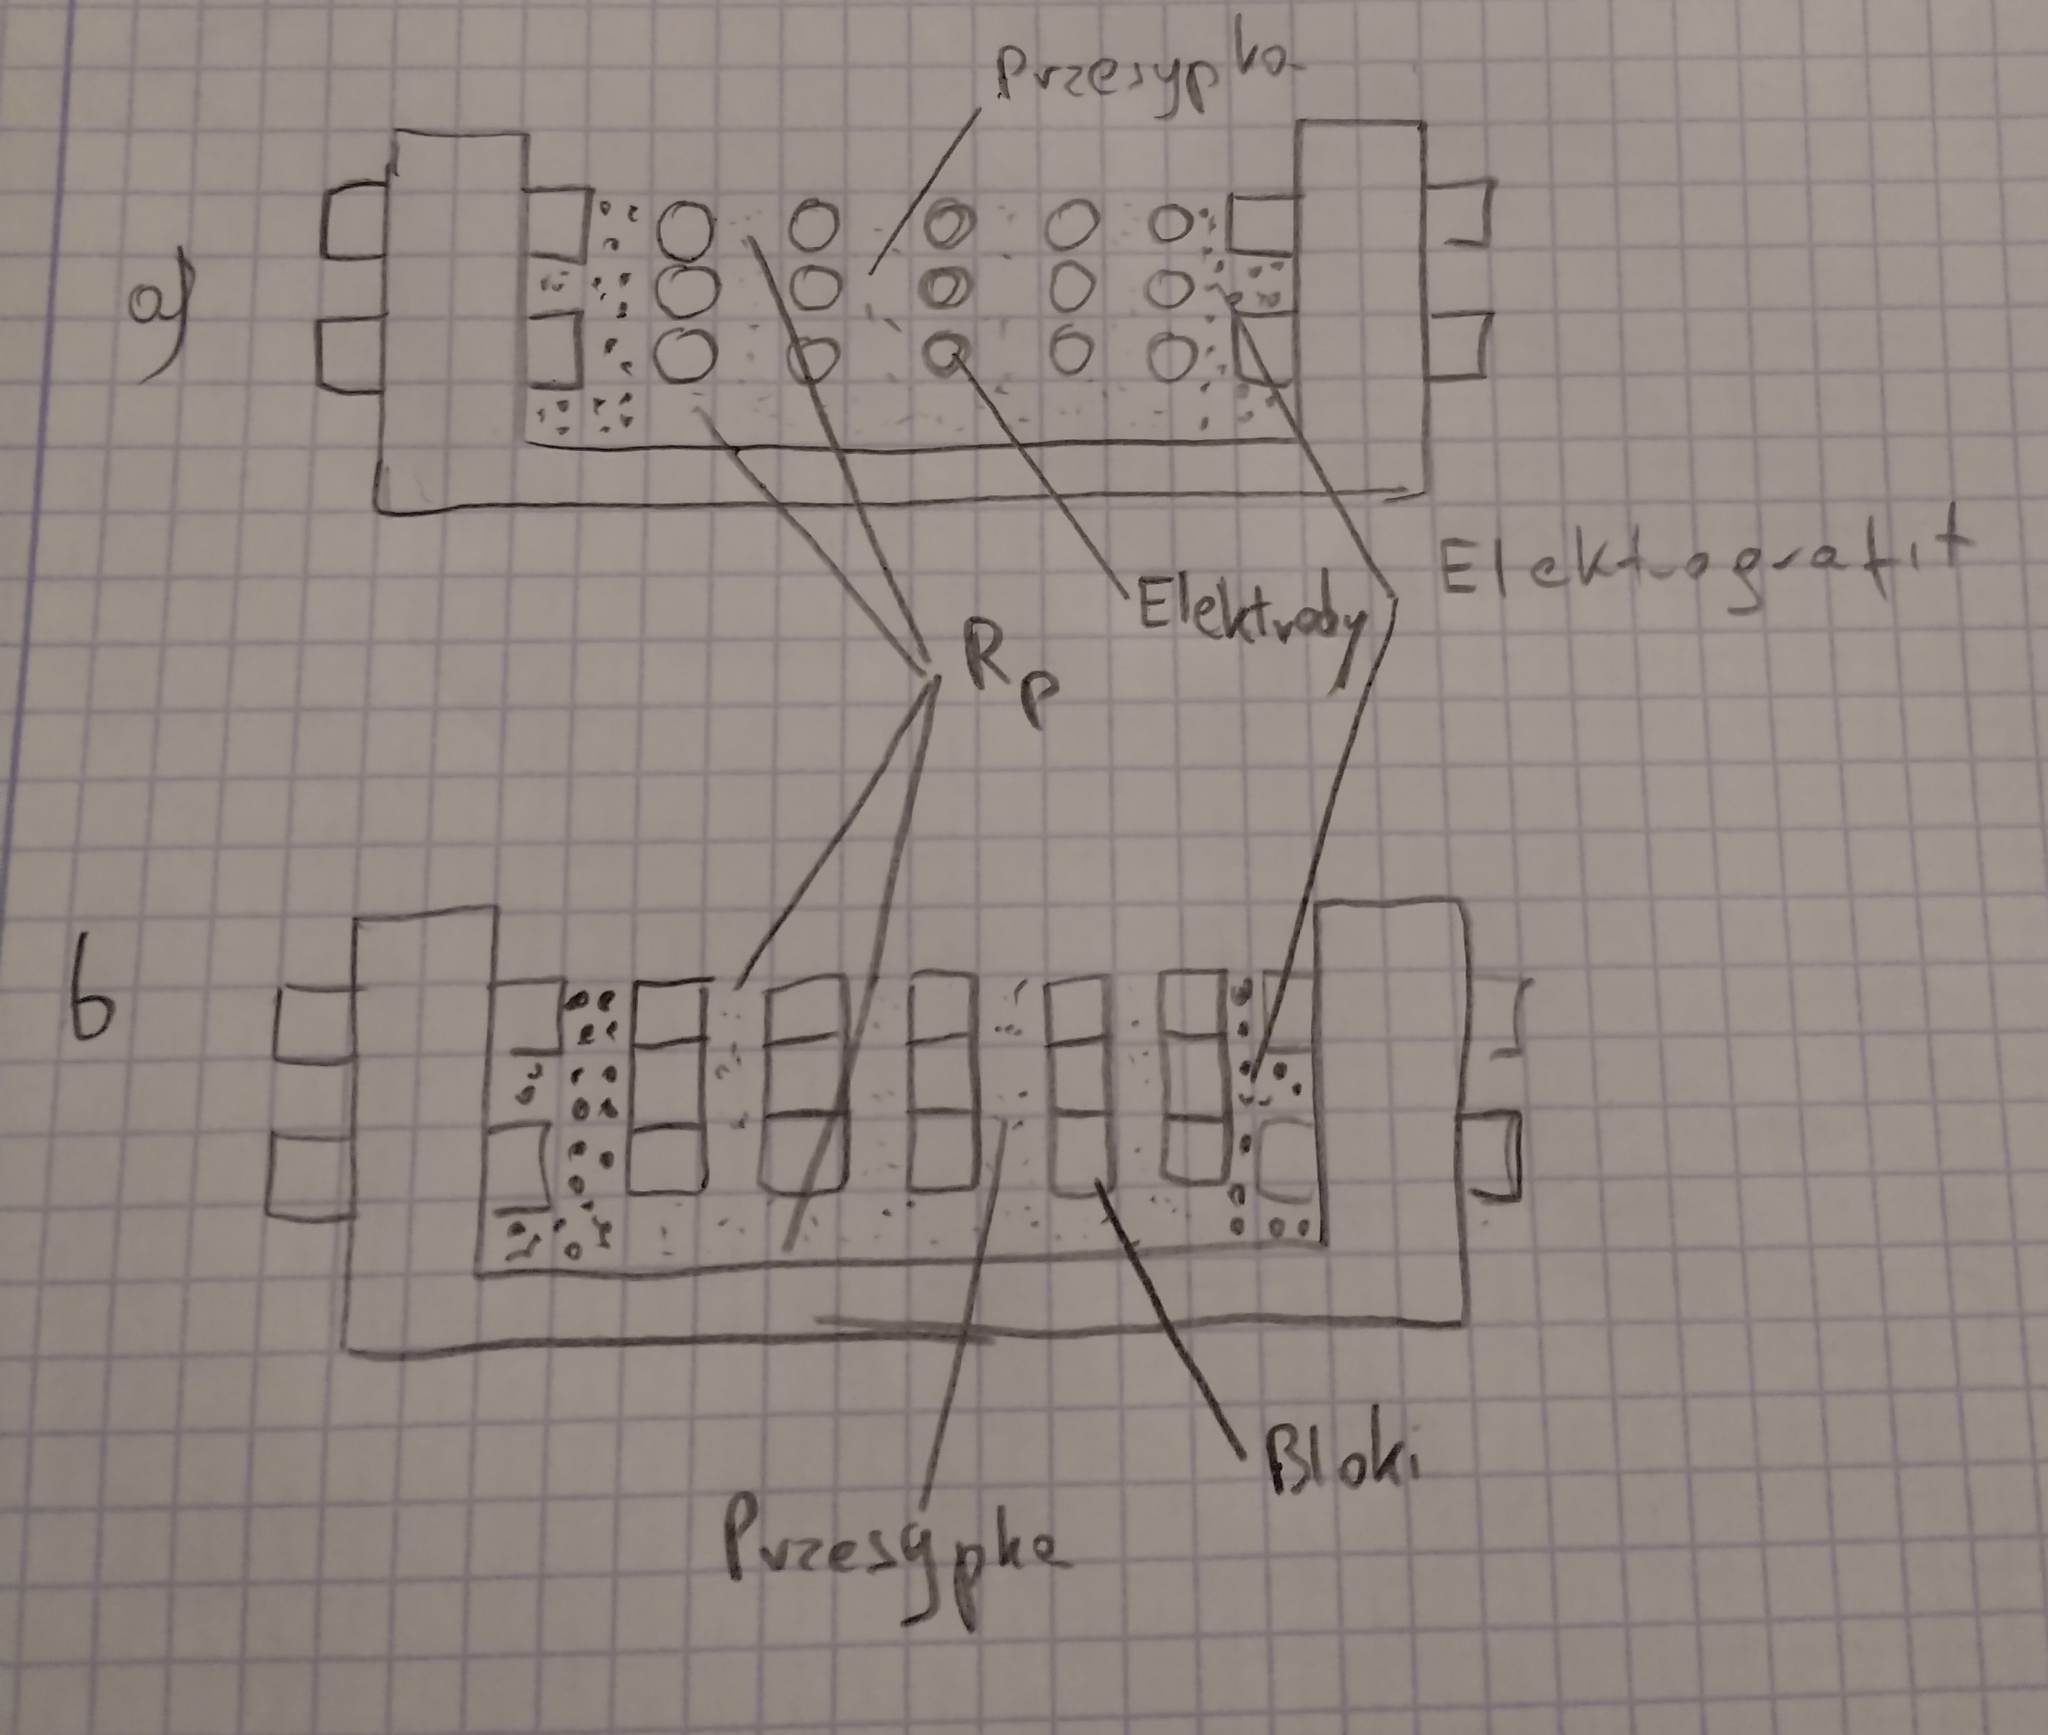 Przesypka
a)
Elektrografit
Elektrody
Rp
b
Bloki
Przesypka